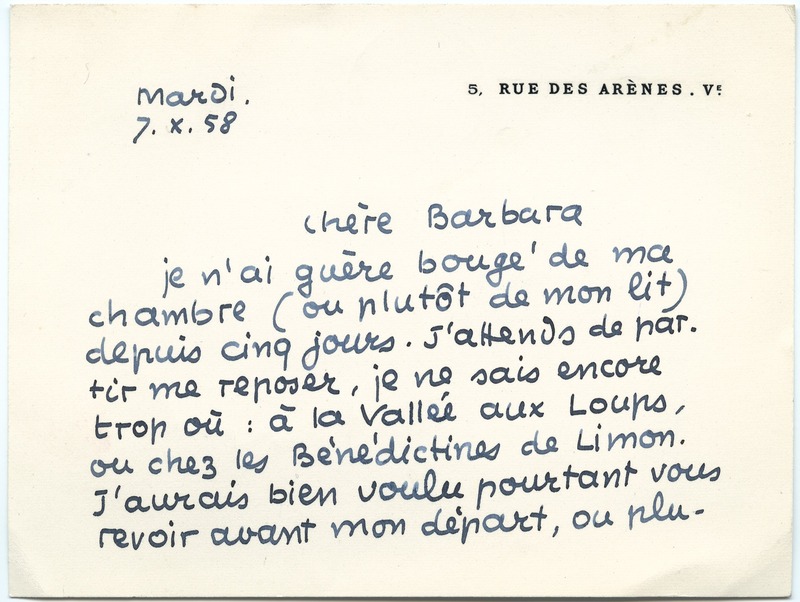 Mardi.
5, RUE DES ARÈNES. Vᴱ
7. X. 58
Chère Barbara
je n'ai guère bougé de ma
chambre (ou plutôt de mon lit)
depuis cinq jours. J'attends de par-
tir me reposer, je ne sais encore
trop où : à la Vallée aux Loups,
ou chez les Bénédictines de Limon.
J'aurais bien voulu pourtant vous
revoir avant mon départ, ou plu-